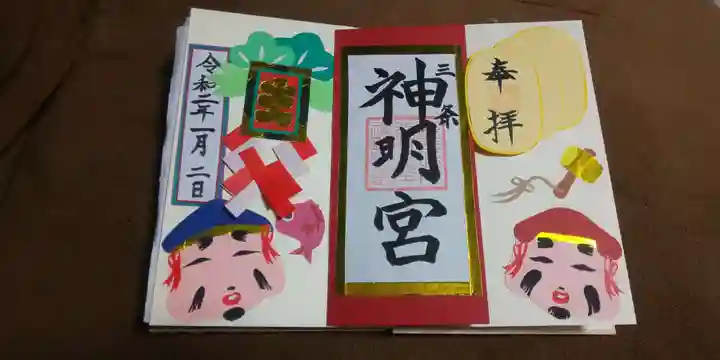 奉拝
三条
神明宮
令和二年一月二日